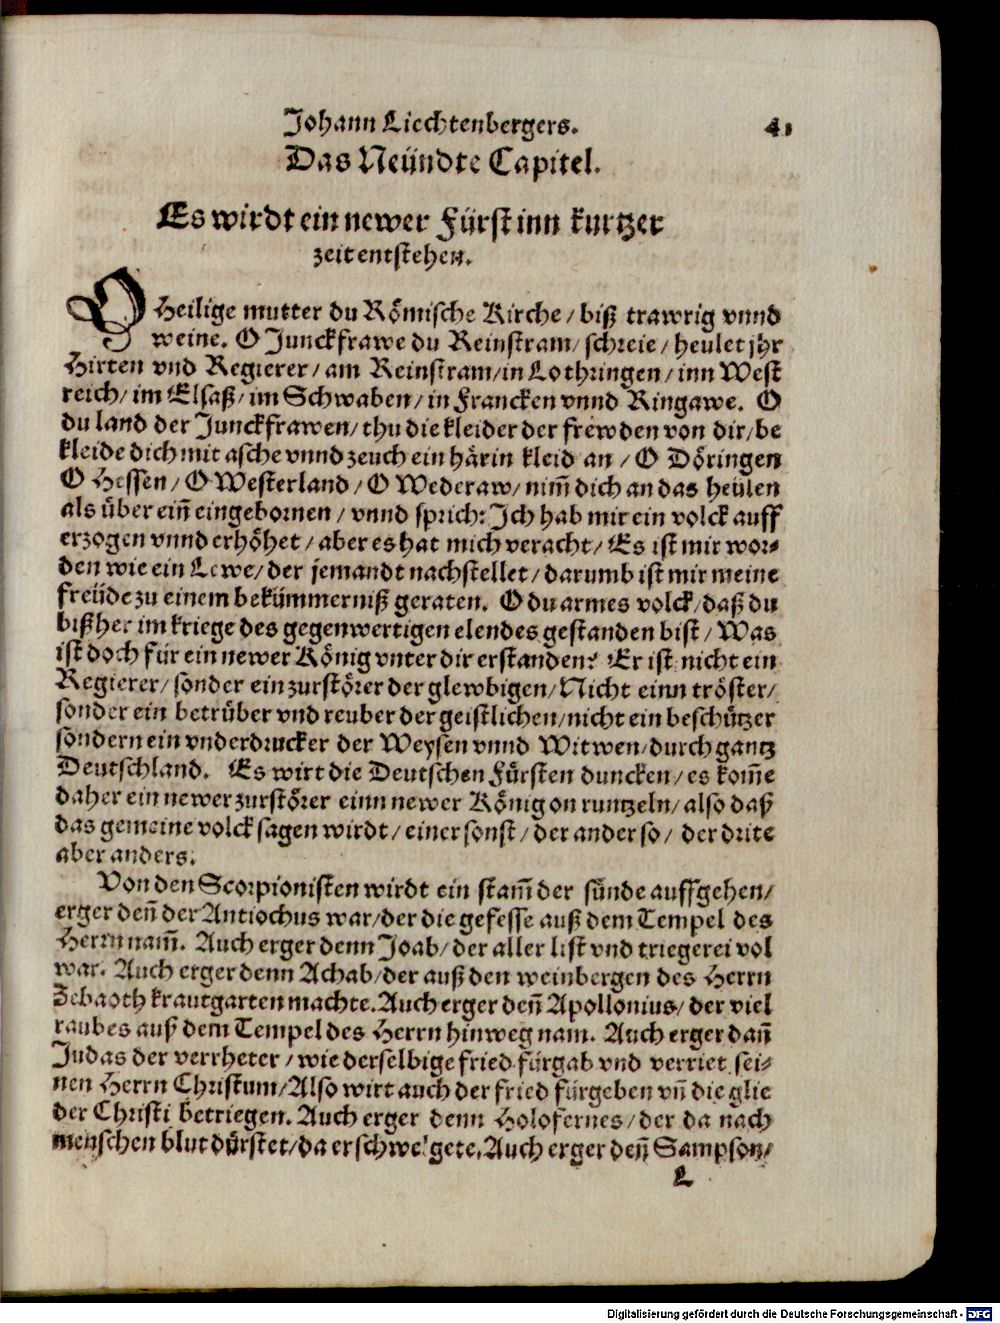 Johann Liechtenbergers. 41
Das Neündte Capitel.
Es wirdt ein newer Fürst inn kurtzer
zeit entstehen.
O Heilige mutter du Römische Kirche / biß trawrig vnnd
weine. O Junckfrawe du Reinstram / schreie / heulet jhr
Hirten vnd Regierer / am Reinstram / in Lothringen / inn West
reich / im Elsaß / im Schwaben / in Francken vnnd Ringawe. O
du land der Junckfrawen / thu die kleider der frewden von dir / be
kleide dich mit asche vnnd zeuch ein härin kleid an / O Döringen
O Hessen / O Westerland / O Wederaw / nim̃ dich an das heülen
als über eiñ eingebornen / vnnd sprich: Jch hab mir ein volck auff
erzogen vnnd erhöhet / aber es hat mich veracht / Es ist mir wor⸗
den wie ein Lewe / der jemandt nachstellet / darumb ist mir meine
freüde zu einem bekümmerniß geraten. O du armes volck / daß du
bißher im kriege des gegenwertigen elendes gestanden bist / Was
ist doch für ein newer König vnter dir erstanden? Er ist nicht ein
Regierer / sonder ein zurstörer der glewbigen / Nicht einn tröster /
sonder ein betrüber vnd reuber der geistlichen / nicht ein beschützer
sondern ein vnderdrucker der Weysen vnnd Witwen / durch gantz
Deutschland. Es wirt die Deutschen Fürsten duncken / es kom̃e
daher ein newer zurstörer einn newer König on runtzeln / also daß
das gemeine volck sagen wirdt / einer sonst / der ander so / der drite
aber anders.
Von den Scorpionisten wirdt ein stam̃ der sünde auffgehen /
erger deñ der Antiochus war / der die gefesse auß dem Tempel des
Herrn nam̃. Auch erger denn Joab / der aller list vnd triegerei vol
war. Auch erger denn Achab / der auß den weinbergen des Herrn
Zebaoth krautgarten machte. Auch erger deñ Apollonius / der viel
raubes auß dem Tempel des Herrn hinweg nam. Auch erger dañ
Judas der verrheter / wie derselbige fried fürgab vnd verriet sei⸗
nen Herrn Christum / Also wirt auch der fried fürgeben vñ die glie
der Christi betriegen. Auch erger denn Holofernes / der da nach
menschen blut dürstet / da er schwelgete. Auch erger deñ Sampson /
L
Digitalisierung gefördert durch die Deutsche Forschungsgemeinschaft - DFG